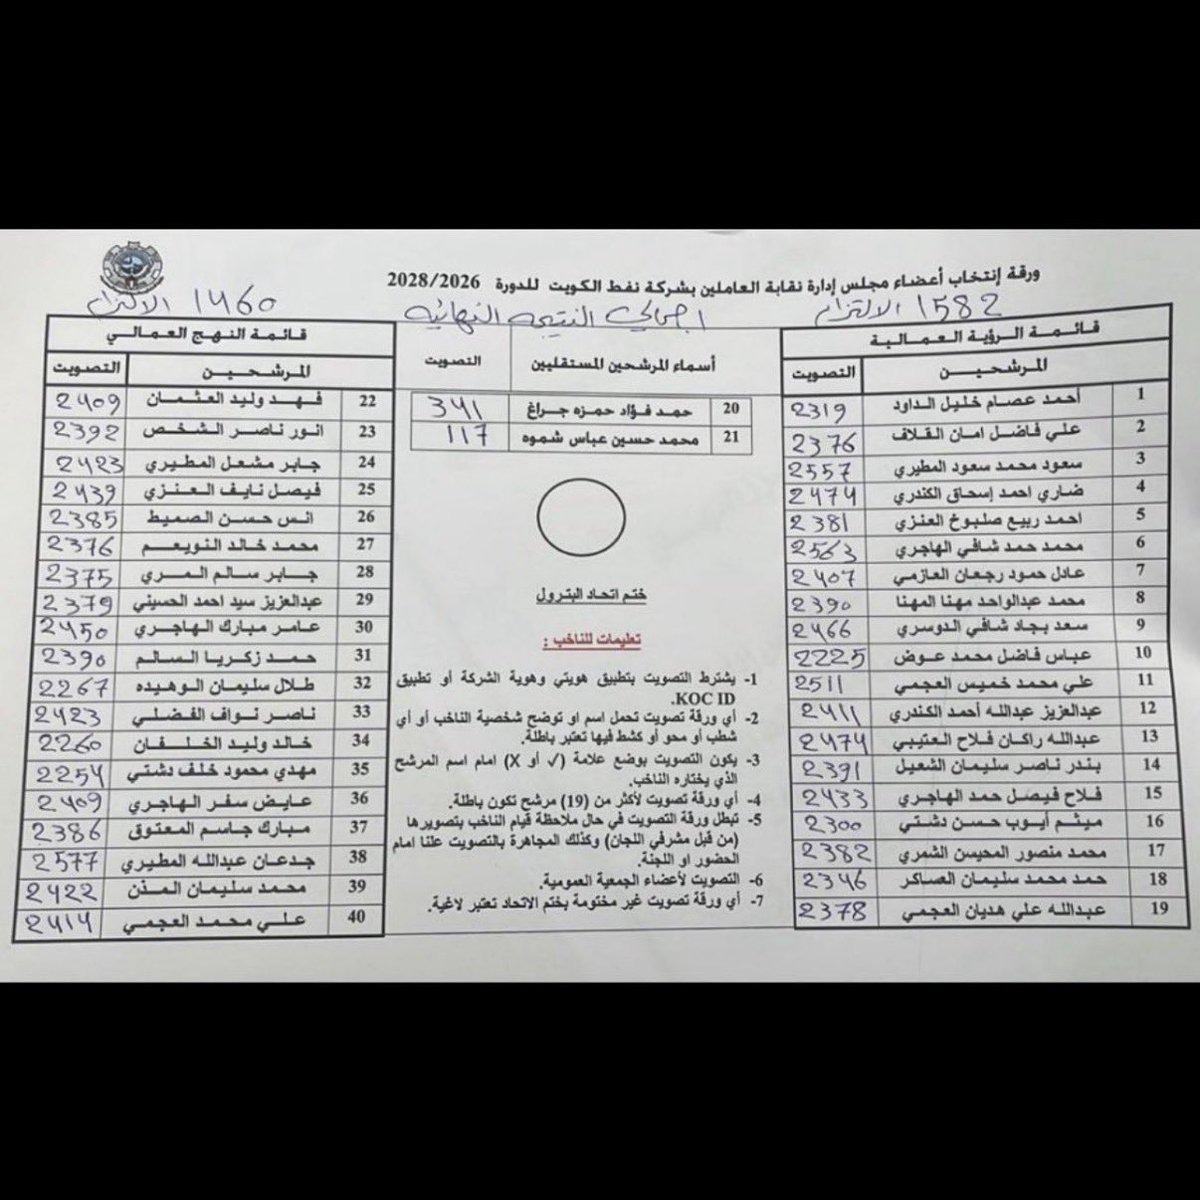 ورقة إنتخاب أعضاء مجلس إدارة نقابة العاملين بشركة نفط الكويت للدورة 2028/2026
1582 الالتزام
اجمالي النتيجه النهائيه
1460 الالتزام
قائمة الرؤية العمالية
المرشحين التصويت
1 أحمد عصام خليل الداود 2319
2 علي فاضل امان القلاف 2376
3 سعود محمد سعود المطيري 2557
4 ضاري احمد إسحاق الكندري 2474
5 احمد ربيع صلبوخ العنزي 2381
6 محمد حمد شافي الهاجري 2563
7 عادل حمود رجعان العازمي 2407
8 محمد عبدالواحد مهنا المهنا 2390
9 سعد بجاد شافي الدوسري 2466
10 عباس فاضل محمد عوض 2225
11 علي محمد خميس العجمي 2511
12 عبدالعزيز عبدالله أحمد الكندري 2411
13 عبدالله راكان فلاح العتيبي 2474
14 بندر ناصر سليمان الشعيل 2391
15 فلاح فيصل حمد الهاجري 2433
16 ميثم أيوب حسن دشتي 2300
17 محمد منصور المحيسن الشمري 2382
18 حمد محمد سليمان العساكر 2346
19 عبدالله علي هديان العجمي 2378
أسماء المرشحين المستقليين التصويت
20 حمد فؤاد حمزه جراغ 341
21 محمد حسين عباس شموه 117
ختم اتحاد البترول
تعليمات للناخب :
1- يشترط التصويت بتطبيق هويتي وهوية الشركة أو تطبيق
KOC ID.
2- أي ورقة تصويت تحمل اسم او توضح شخصية الناخب أو أي
شطب أو محو أو كشط فيها تعتبر باطلة.
3- يكون التصويت بوضع علامة (√ أو X) امام اسم المرشح
الذي يختاره الناخب.
4- أي ورقة تصويت لأكثر من (19) مرشح تكون باطلة.
5- تبطل ورقة التصويت في حال ملاحظة قيام الناخب بتصويرها
(من قبل مشرفي اللجان) وكذلك المجاهرة بالتصويت علنا امام
الحضور او اللجنة.
6- التصويت لأعضاء الجمعية العمومية.
7- أي ورقة تصويت غير مختومة بختم الاتحاد تعتبر لاغية.
قائمة النهج العمالي
المرشحين التصويت
22 فهد وليد العثمان 2409
23 انور ناصر الشخص 2392
24 جابر مشعل المطيري 2423
25 فيصل نايف العنزي 2439
26 انس حسن الصميط 2385
27 محمد خالد النويعم 2376
28 جابر سالم المري 2375
29 عبدالعزيز سيد احمد الحسيني 2379
30 عامر مبارك الهاجري 2450
31 حمد زكريا السالم 2390
32 طلال سليمان الوهيده 2267
33 ناصر نواف الفضلي 2423
34 خالد وليد الخلفان 2260
35 مهدي محمود خلف دشتي 2254
36 عايض سفر الهاجري 2409
37 مبارك جاسم المعتوق 2386
38 جدعان عبدالله المطيري 2577
39 محمد سليمان المذن 2422
40 علي محمد العجمي 2414